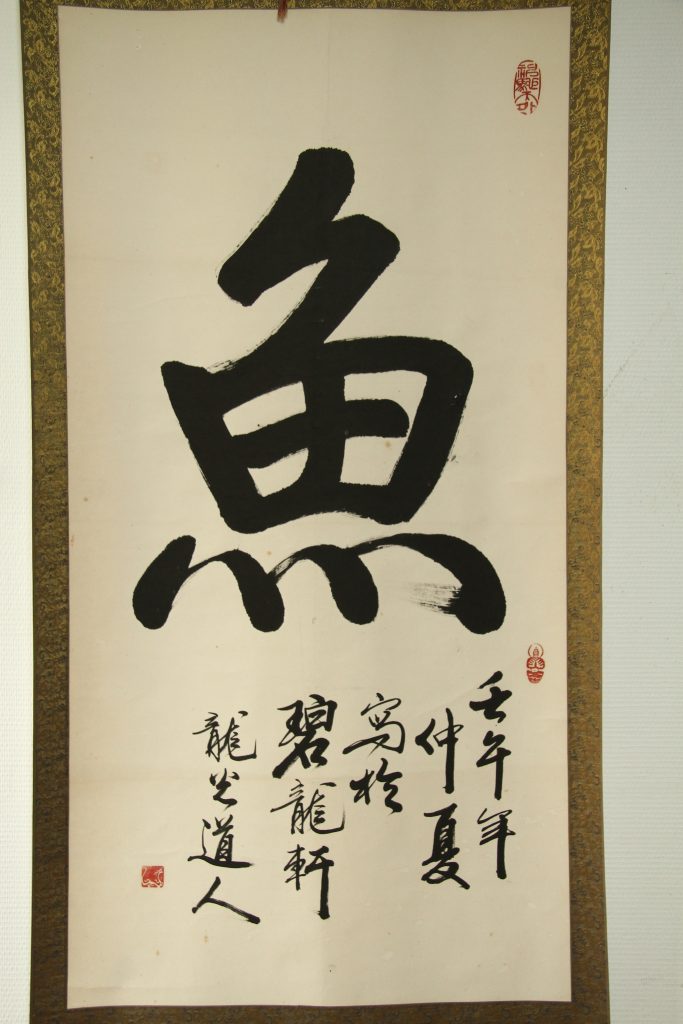 魚
壬午年
仲夏
寫於
碧龍軒
龍光道人